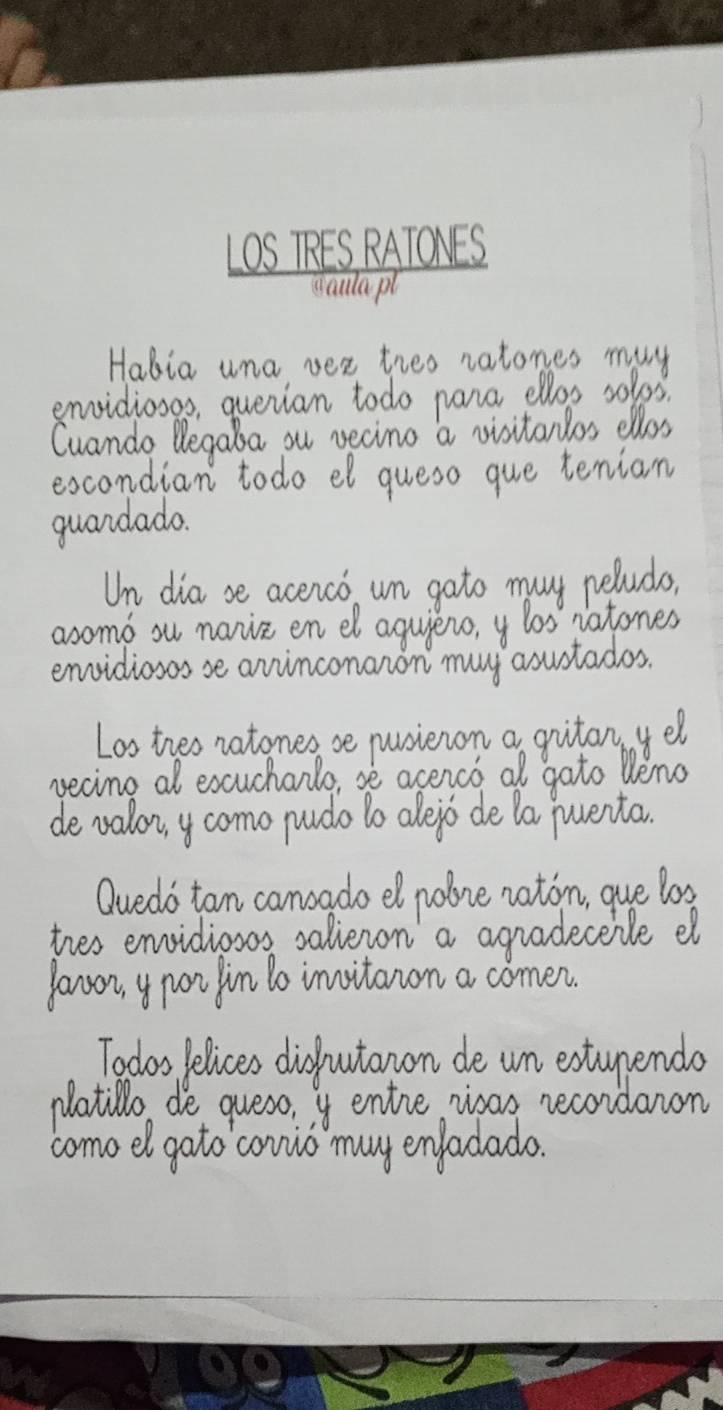 LOS TRES RATONES
@aula.pl
Había una vez tres ratones muy
envidiosos, querían todo para ellos solos.
Cuando llegaba su vecino a visitarlos ellos
escondían todo el queso que tenían
guardado.
Un día se acercó un gato muy peludo,
asomó su nariz en el agujero, y los ratones
envidiosos se arrinconarón muy asustados.
Los tres ratones se pusieron a gritar, y el
vecino al escucharlo, se acercó al gato lleno
de valor, y como pudo lo alejó de la puerta.
Quedó tan cansado el pobre ratón, que los
tres envidiosos salieron a agradecerle el
favor, y por fin lo invitaron a comer.
Todos felices disfrutaron de un estupendo
platillo de queso, y entre risas recordaron
como el gato corrió muy enfadado.